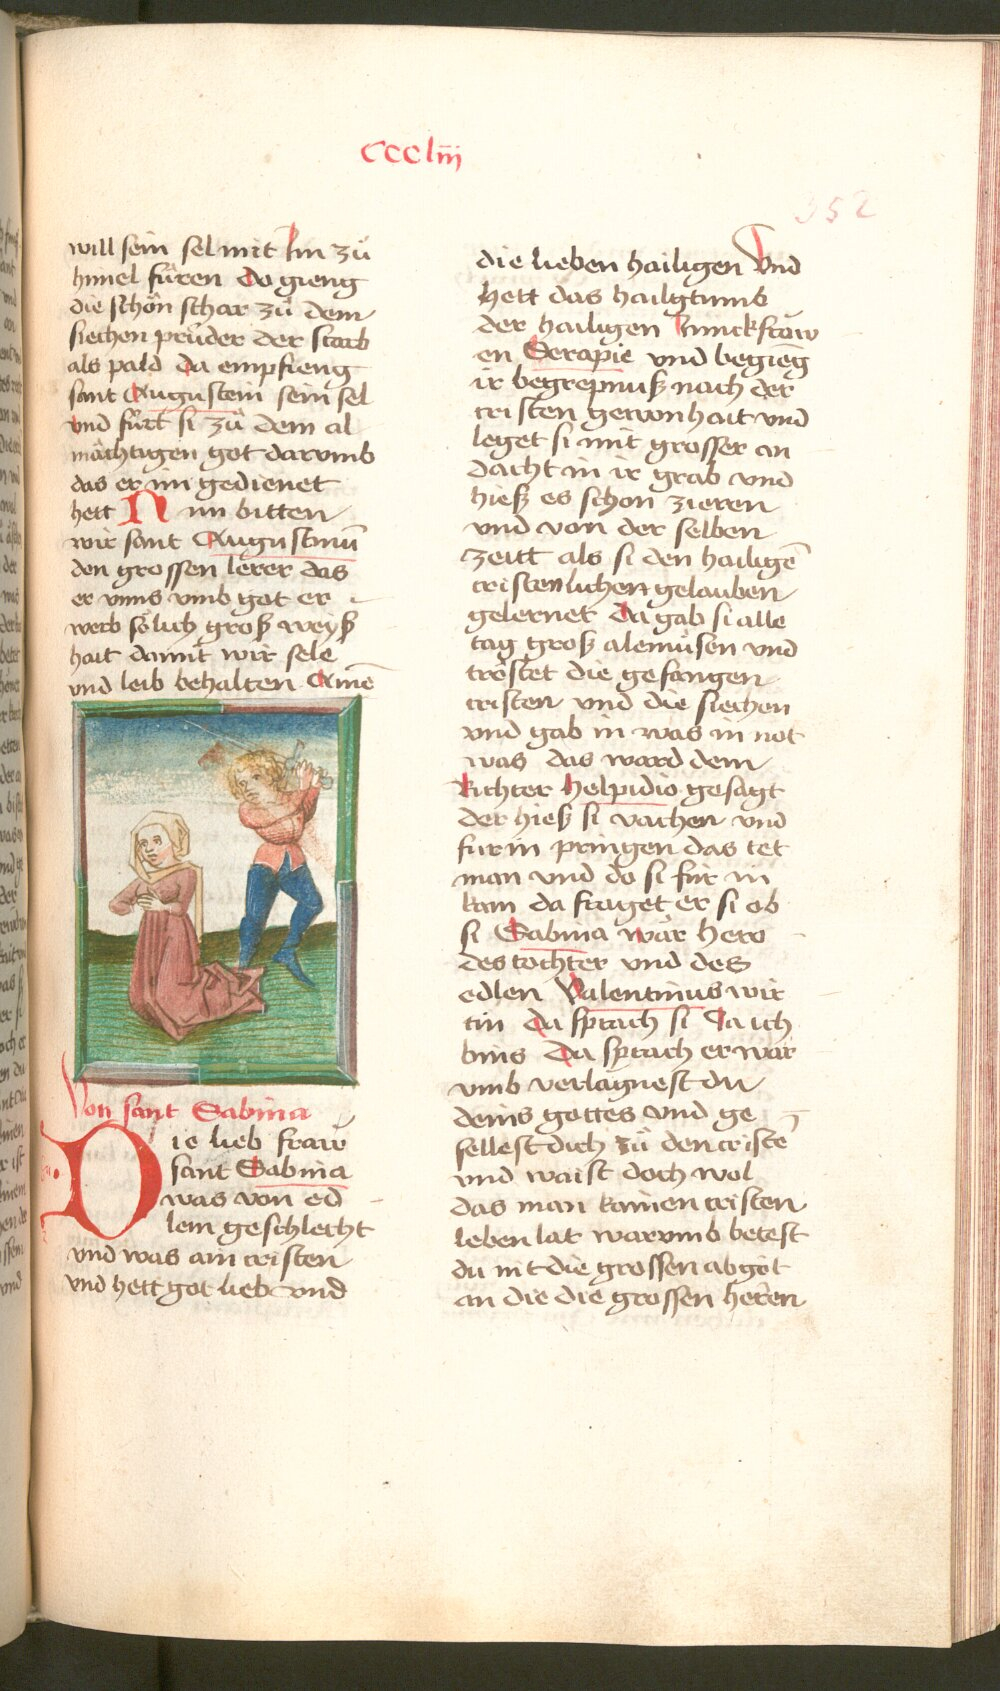 CCCliij
352
will sein sel mit Im zů
himel fůren do gieng
die schön schar zů dem
siechen průder der starb
als pald da empfieng
sant Augustein sein sel
vnd fůrt si zů dem al
mächtigen got darvmb
das er im gedienet
hett Nun bitten
wir sant Augustinū
den grossen lerer das
er vnns vmb got er
werb sölich groß weyß
hait damit wir sele
vnd leib behalten Amē
Von sant Sabina
Die lieb fraw
sant Sabina
was von ed
lem geschlecht
vnd was ain cristen
vnd hett got lieb vnd
die lieben hailigen Vnd
hett das hailgtumb
der hailigen Junckfraw
en Serapie vnd begieg
ir begrepnuß nach der
cristen gewonhait vnd
leget si mit grosser an
dacht in ir grab vnd
hieß es schon zieren
vnd von der selben
zeitt als si den hailigē
cristenlichen gelauben
gelernet Da gab si alle
tag groß alemůsen vnd
tröstet die gefangen
cristen vnd die siechen
vnd gab in was in not
was das ward dem
Richter helpidio gesagt
der hieß si vachen vnd
fur in pringen das tet
man vnd do si für in
kam da fraget er si ob
si Sabina wär hero
des tochter vnd des
edlen Valentinus wir
tin Da sprach si Ja ich
bins Da sprach er war
vmb verlaugnest du
deins gottes vnd ge
sellest dich zů den cristē
vnd waist doch wol
das man kainen cristen
leben lat warvmb betest
du nit die grossen abgöt
an die die grossen herren